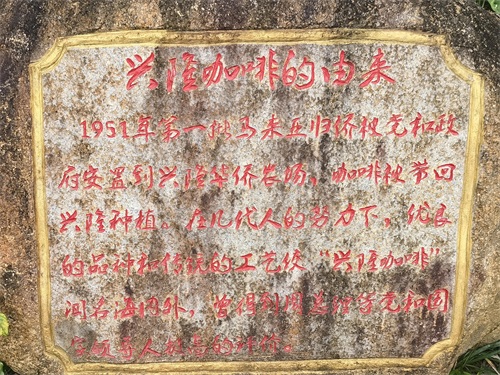 兴隆咖啡的由来
1951年第一批马来亚归侨被党和政
府安置到兴隆华侨农场，咖啡被带回
兴隆种植。在几代人的努力下，优良
的品种和传统的工艺使“兴隆咖啡”
闻名海内外，曾得到周总理等党和国
家领导人极高的评价。